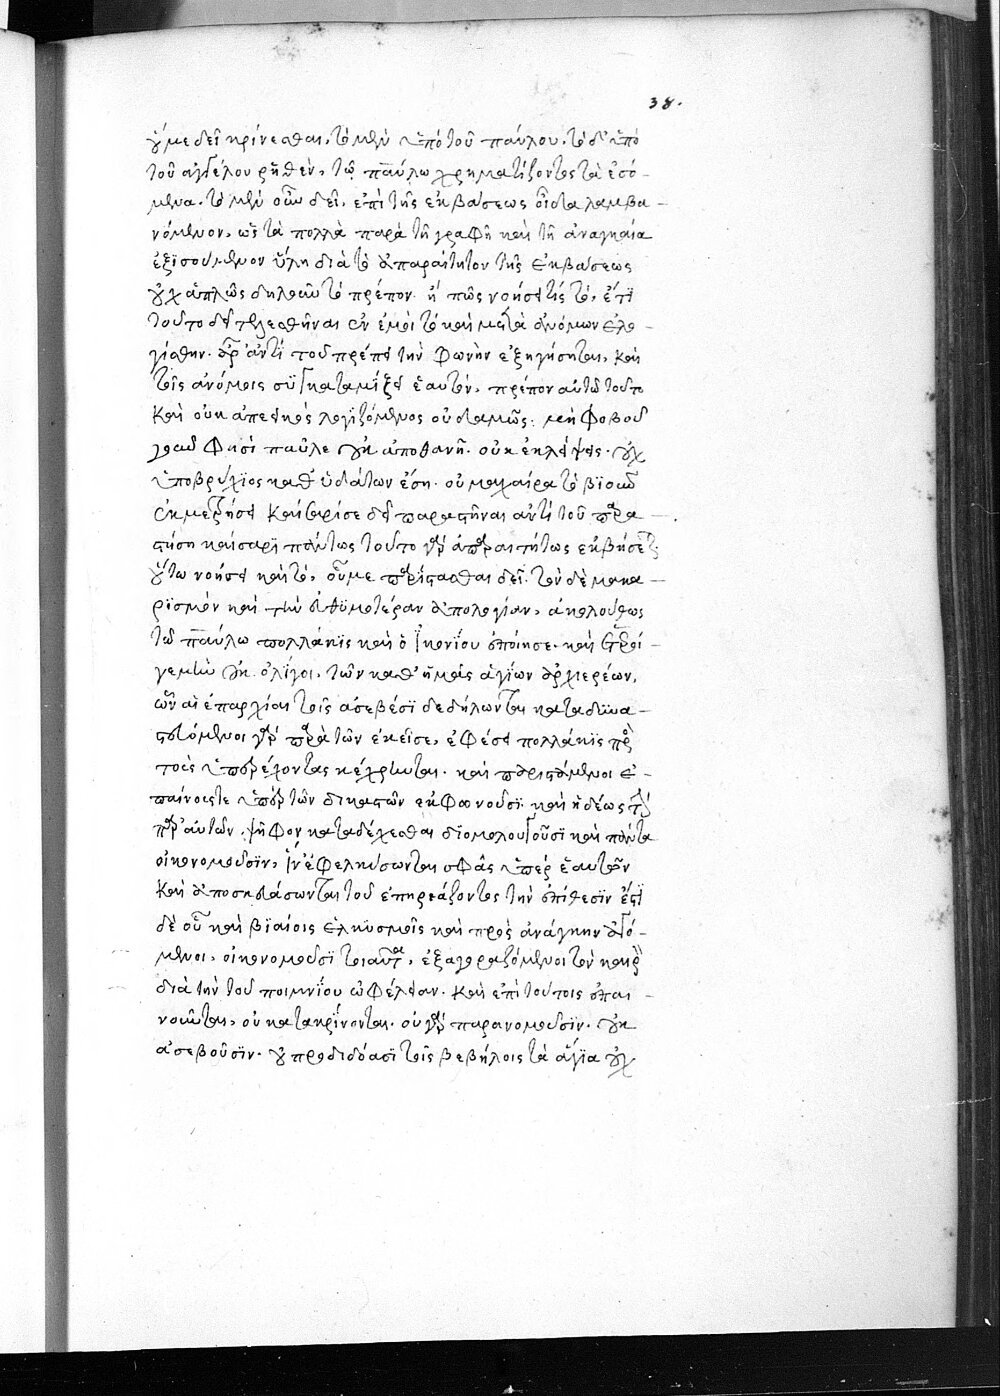 38.
οὗ με δεῖ κρίνεσθαι, τὸ μὲν ὑπὸ τοῦ παύλου, τὸ δ' ὑπὸ
τοῦ ἀγγέλου ῥηθὲν, τῷ παύλω χρηματίζοντος τὰ ἐσό-
μενα. τὸ μὲν οὖν δεῖ, ἐπὶ τῆς ἐκβάσεως οἶδα λαμβα-
νόμενον, ὡς τὰ πολλὰ παρὰ τῇ γραφῇ καὶ τῇ ἀναγκαία
ἐξϊσούμενον ὕλη διὰ τὸ ἀπαραίτητον τῆς ἐκβάσεως
οὐχ ἁπλῶς δηλοῦν τὸ πρέπον. ἢ πῶς νοήσει τίς τὸ, ἔτϊ
τοῦτο δεῖ τελεσθῆναι ἐν ἐμοὶ τὸ καὶ μετὰ ἀνόμων ἐλο-
γίσθην. ἆρ' ἀντὶ τοῦ πρέπει τὴν φωνὴν ἐξηγήσηται, καὶ
τοῖς ἀνόμοις συγκαταμίξει ἑαυτὸν, πρέπον αὐτῶ τοῦτο
καὶ οὐκ ἀπεικὸς λογϊζόμενος οὐδαμῶς; μὴ φοβοῦ
γὰρ φησὶ παῦλε οὐκ ἀποθανῇ. οὐκ ἐκλείψεις. οὐχ
ὑποβρύχιος καθ' ὑδάτων ἔση. οὐ μαχαίρα τὸ βϊοῦν
ἐκμετρήσει καίσαρϊ σε δεῖ παραστῆναι ἀντὶ τοῦ παρα-
στήση καίσαρϊ πάντως τοῦτο γὰρ ἀπαραιτήτως ἐκβήσεται
οὕτω νοήσει καὶ τὸ, οὗ με παρίστασθαι δεῖ. τὸν δὲ μακα-
ρϊσμὸν καὶ τὴν εὐθϋμοτέραν ἀπολογίαν, ἀκολούθως
τῶ παύλω πολλάκϊς καὶ ὁ ἰκονίου ἐποίησε. καὶ ἕτεροι
γε μὴν οὐκ ὀλίγοι, τῶν καθ' ἡμᾶς ἁγίων ἀρχιερέων,
ὧν αἱ ἐπαρχίαι τοῖς ἀσεβέσϊ δεδήλωνται καταδϋνα-
στευόμενοι γὰρ παρὰ τῶν ἐκεῖσε, ἐφέσει πολλάκϊς πρὸς
τοὺς ὑπερέχοντας κέχρηνται. καὶ παριστάμενοι ἐ-
παίνοις τε ὑπὲρ τῶν δικαστῶν ἐκφωνοῦσϊ καὶ ἡδέως τὴν
παρ' αὐτῶν ψῆφον καταδέχεσθαι δϊομολογοῦσϊ καὶ πάντα
οἰκονομοῦσϊν, ἵν' ἐφελκύσωνται σφᾶς ὑπὲρ ἑαυτῶν
καὶ ἀποσκευάσωνται τοῦ ἐπηρεάζοντος τὴν ἐπίθεσϊν ἔστϊ
δὲ οὗ καὶ βϊαίοις ἑλκϋσμοῖς καὶ πρὸς ἀνάγκην ἀγό-
μενοι, οἰκονομοῦσϊ τοιαῦτα, ἐξαγοραζόμενοι τὸν καιρὸν
διὰ τὴν τοῦ ποιμνίου ὠφέλειαν. καὶ ἐπὶ τούτοις ἐπαι-
νοῦνται, οὐ κατακρίνονται. οὐ γὰρ παρανομοῦσϊν. οὐκ
ἀσεβοῦσϊν. οὐ προδιδόασϊ τοῖς βεβήλοις τὰ ἅγϊα οὐχ